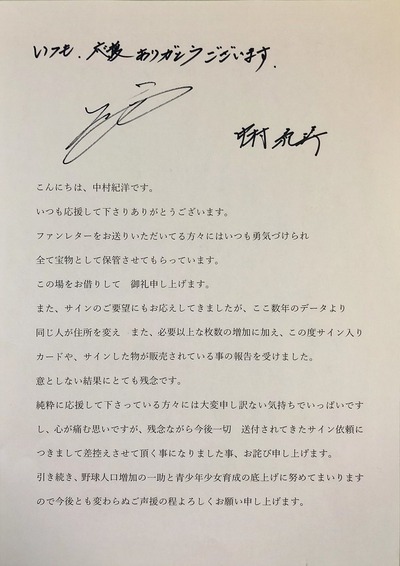 いつも、応援ありがとうございます.
中村紀洋
こんにちは、中村紀洋です。
いつも応援して下さりありがとうございます。
ファンレターをお送りいただいてる方々にはいつも勇気づけられ
全て宝物として保管させてもらっています。
この場をお借りして　御礼申し上げます。
また、サインのご要望にもお応えしてきましたが、ここ数年のデータより
同じ人が住所を変え　また、必要以上な枚数の増加に加え、この度サイン入り
カードや、サインした物が販売されている事の報告を受けました。
意としない結果にとても残念です。
純粋に応援して下さっている方々には大変申し訳ない気持ちでいっぱいです
し、心が痛む思いですが、残念ながら今後一切　送付されてきたサイン依頼に
つきまして差控えさせて頂く事になりました事、お詫び申し上げます。
引き続き、野球人口増加の一助と青少年少女育成の底上げに努めてまいります
ので今後とも変わらぬご声援の程よろしくお願い申し上げます。